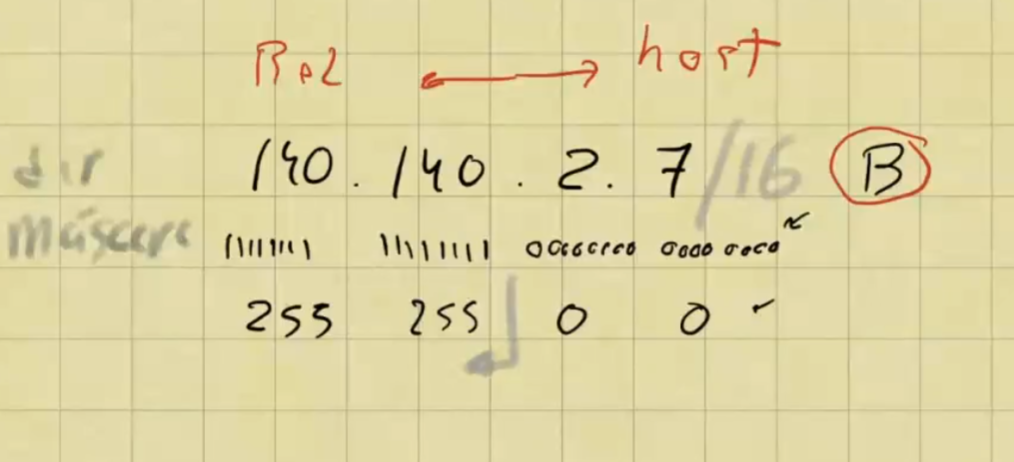 Red host
dir 140 . 140 . 2 . 7 /16 B
máscara 11111111 11111111 00000000 0000 0000
255 255 0 0